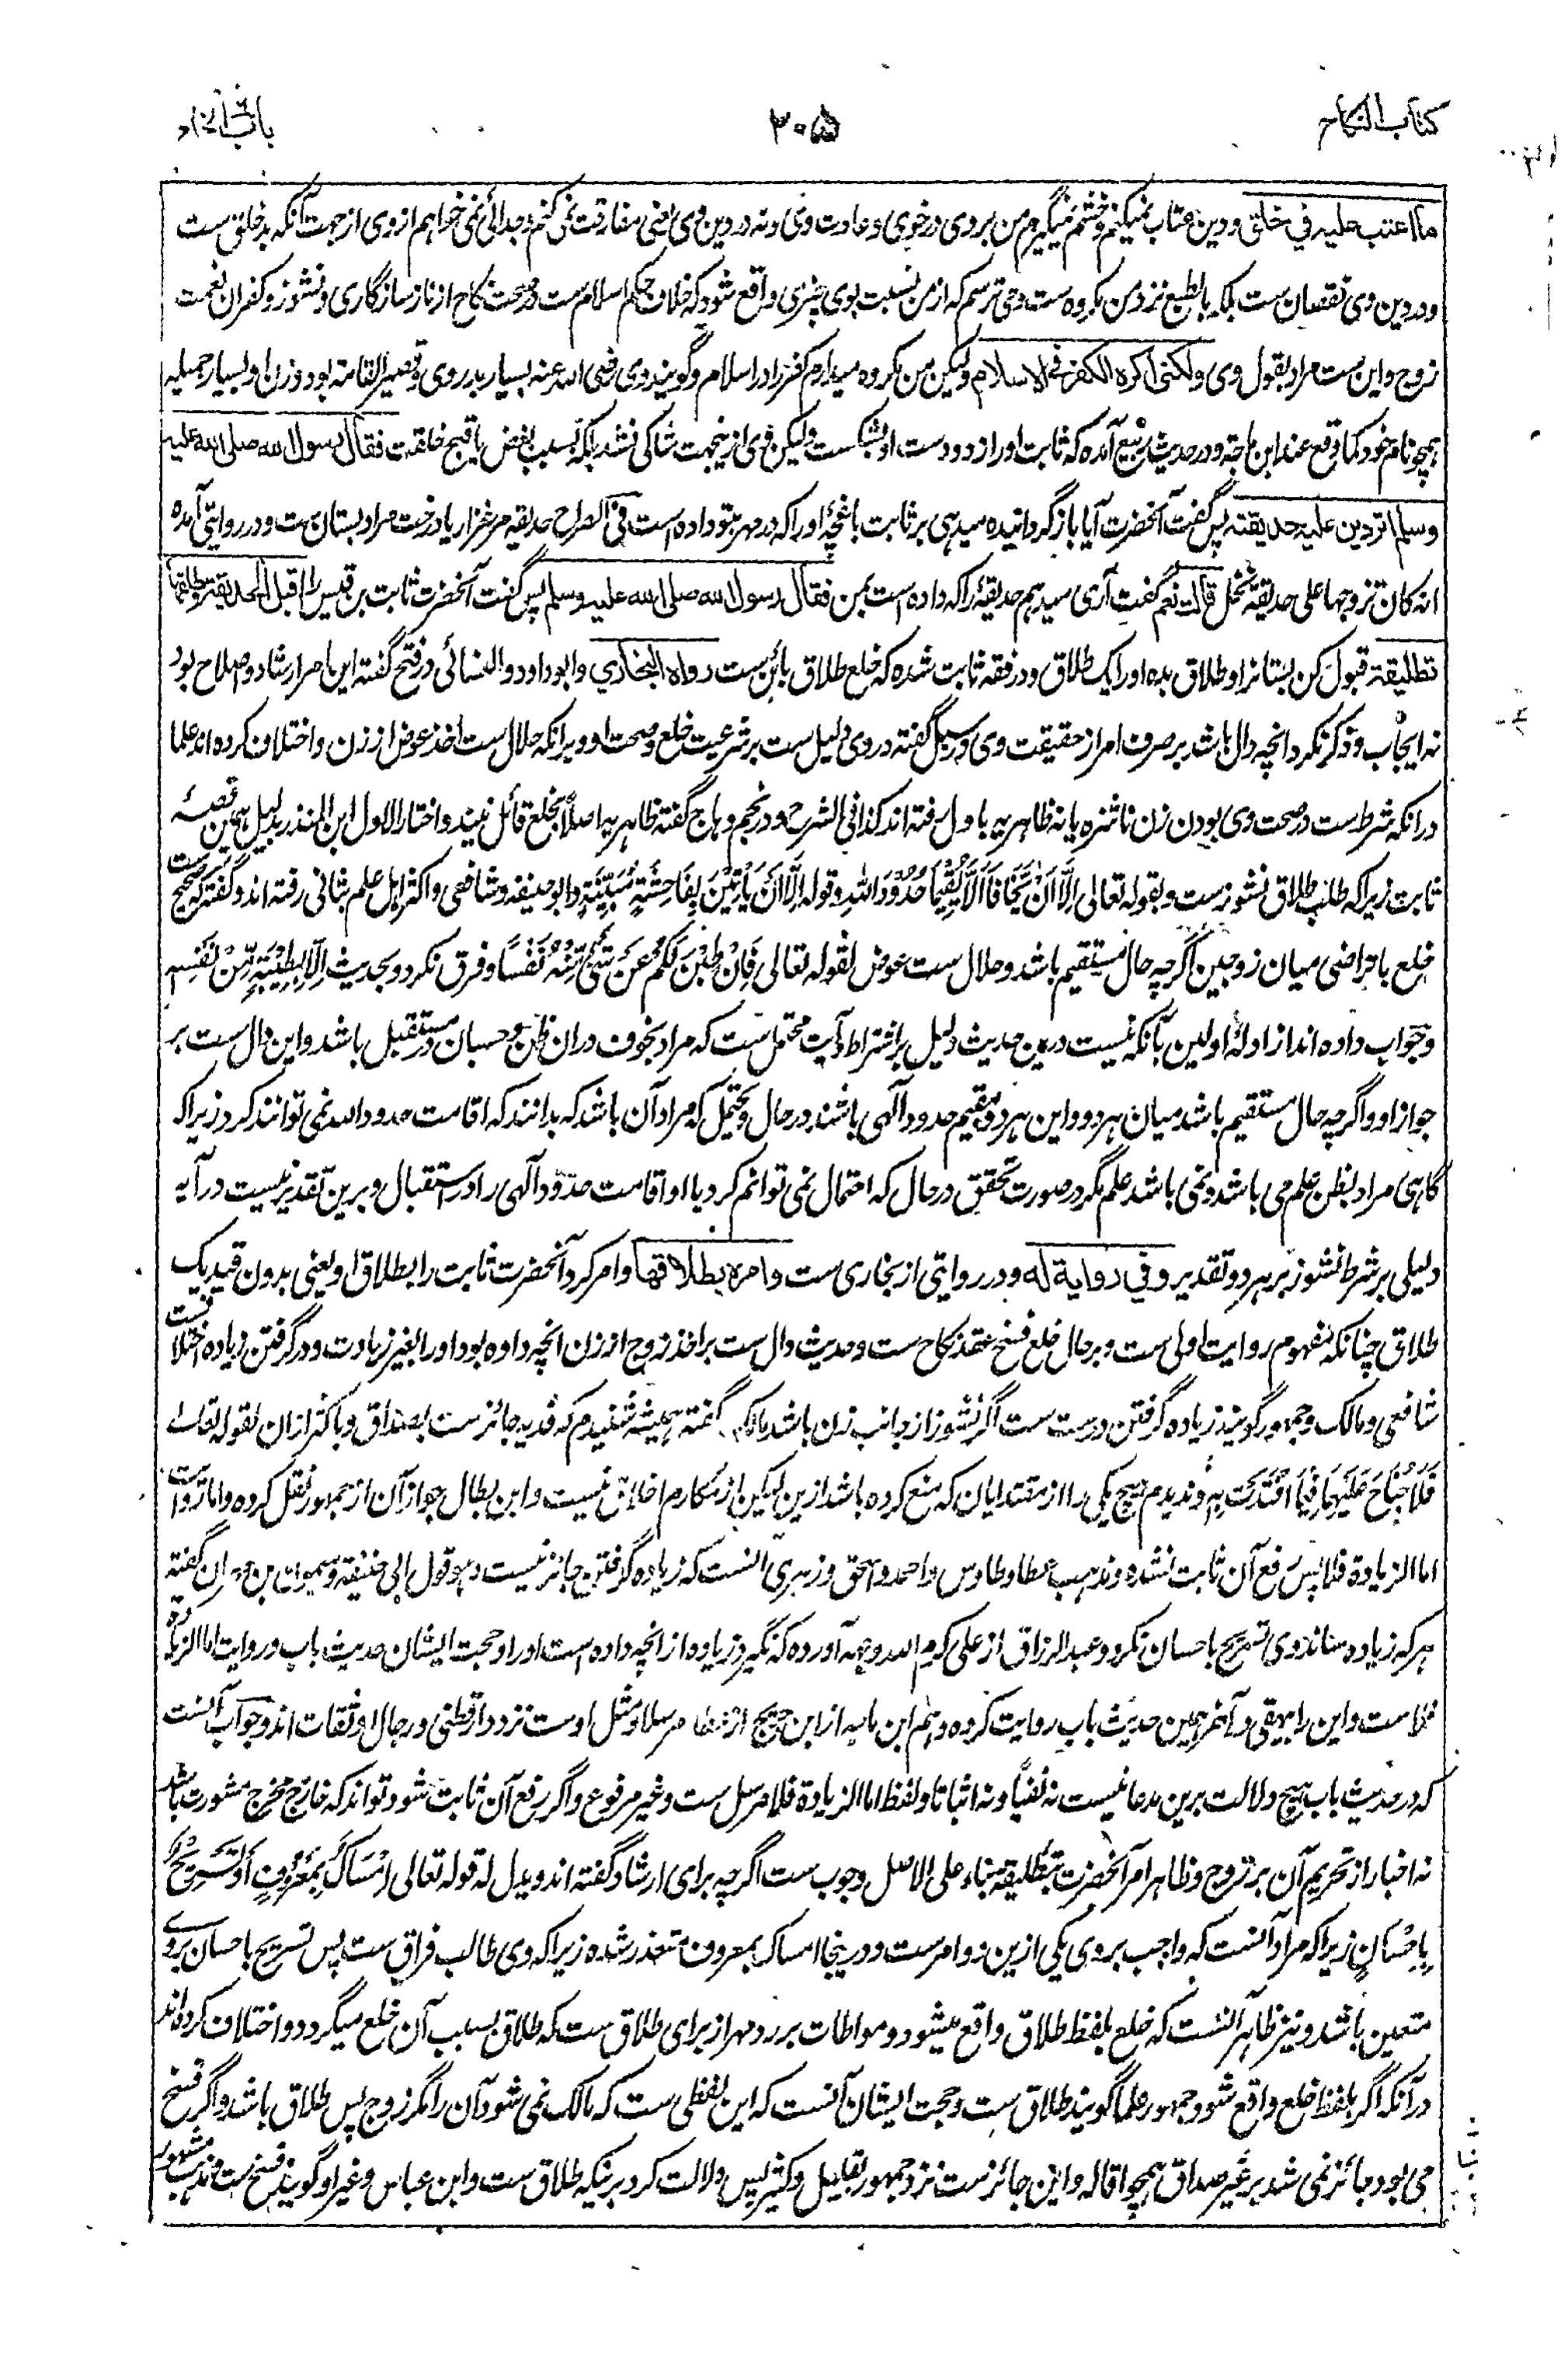 کتاب النکاح
۳۰۵
ما اعتب علیه فی خلق و دین عتاب نمیکنم و خشم نمیگیرم من بر وی در خوی و عادت وی و نه در دین وی یعنی مفارقت نمی کنم و جدائی نمی خواهم از وی از جهت آنکه بدخلق ست
و در دین وی نقصان ست بلکه بالطبع نزد من مکروه ست و می ترسم که از من نسبت بوی چیزی واقع شود که خلاف حکم اسلام ست در صحت نکاح از ناسازگاری و نشوز و کفران نعمت
زوج و این ست مراد بقول وی ولکنی اکره الکفر فی الاسلام ولیکن من مکروه میدارم کفر را در اسلام و گویند وی رضی الله عنه بسیار بدروی و قصیر القامت بود و زن او بسیار جمیله
همچو نام خود کما وقع عند ابن ماجة و در حدیث ربیع آمده که ثابت او را زد و دست او شکست ولیکن وی ازینجهت شاکی نشد بلکه بسبب بغض یا قبح خلقت فقال رسول الله صلی الله علیه
وسلم اتردین علیه حدیقته پس گفت آنحضرت آیا باز گردانیده میدهی بر ثابت باغچهٔ او را که در مهر بتو داده است فی الصراح حدیقه مرغزار با درخت مراد بستان ست و در روایتی آمده
انه کان تزوجها علی حدیقة نخل قالت نعم گفت آری میدهم حدیقهٔ را که داده است بمن فقال رسول الله صلی الله علیه وسلم پس گفت آنحضرت ثابت بن قیس را اقبل الحدیقة وطلقها
تطلیقة قبول کن بستانرا و طلاق بده او را یک طلاق و در فقه ثابت شده که خلع طلاق بائن ست رواه البخاری و ابو داود و النسائی در فتح گفته این امر ارشاد و اصلاح بود
نه ایجاب و ذکر نکرد انچه دال باشد بر صرف امر از حقیقت وی و در سبل گفته در وی دلیل ست بر شرعیت خلع و صحت او و برانکه حلال ست اخذ عوض از زن و اختلاف کرده اند علما
درانکه شرط ست در صحت وی بودن زن ناشزه یا نه ظاهریه باول رفته اند کذا فی الشرح و در نجم وهاج گفته ظاهریه اصلا بخلع قائل نیند و اختار الاول ابن المنذر بدلیل همین قصهٔ
ثابت زیرا که طلب طلاق نشوز ست و بقوله تعالی اِلَّا اَنْ یَّخَافَا اَلَّا یُقِیْمَا حُدُوْدَ اللهِ وقوله اِلَّا اَنْ یَّأْتِیْنَ بِفَاحِشَةٍ مُّبَیِّنَةٍ و ابو حنیفه و شافعی و اکثر اهل علم بثانی رفته اند و گفته که صحیح ست
خلع با تراضی میان زوجین اگرچه حال مستقیم باشد و حلال ست عوض لقوله تعالی فَاِنْ طِبْنَ لَکُمْ عَنْ شَیْءٍ مِّنْهُ نَفْسًا و فرق نکرد و بحدیث اِلَّا بِطِیْبَةٍ مِّنْ نَفْسِهِ
و جواب داده اند از ادلهٔ اولین بآنکه نیست درین حدیث دلیل بر اشتراط و آیت محتمل ست که مراد بخوف دران ظن و حسبان در مستقبل باشد و این دال ست بر
جواز او و اگرچه حال مستقیم باشد میان هر دو و این هر دو مقیم حدود الٓهی باشند در حال و یحتمل که مراد آن باشد که بدانند که اقامت حدود الله نمی توانند کرد زیرا که
گاهی مراد بظن علم می باشد و نمی باشد علم مگر در صورت تحقق در حال که احتمال نمی توانم کرد با او اقامت حدود الٓهی را در استقبال و برین تقدیر نیست در آیه
دلیلی بر شرط نشوز بر هر دو تقدیر وفی روایة له و در روایتی از بخاری ست وامره بطلاقها و امر کرد آنحضرت ثابت را بطلاق او یعنی بدون قید یک
طلاق چنانکه مفهوم روایت اولی ست و بهر حال خلع فسخ عقد نکاح ست و حدیث دال ست بر اخذ زوج از زن انچه داده بود او را بغیر زیادت و در گرفتن زیاده اختلاف ست
شافعی و مالک و جمهور گویند زیاده گرفتن درست ست اگر نشوز از جانب زن باشد مالک گفته همیشه شنیدم که فدیه جائز ست بصداق و باکثر ازان لقوله تعالی
فَلَا جُنَاحَ عَلَیْهِمَا فِیْمَا افْتَدَتْ بِهِ و ندیدم هیچ یکی را از مقتدایان که منع کرده باشد ازین لیکن از مکارم اخلاق نیست و ابن بطال جواز آن از جمهور نقل کرده و اما روایت
اما الزیادة فلا پس رفع آن ثابت نشده و مذهب عطا و طاوس و احمد و اسحق و زهری آنست که زیاده گرفتن جائز نیست و هو قول ابی حنیفة و میمون بن مهران گفته
هر که زیاده ستاند وی تسریح باحسان نکرد و عبد الرزاق از علی کرم الله وجهه آورده که نگیرد زیاده از انچه داده است او را و حجت ایشان حدیث باب و روایت اما الزیادة
فلا ست و این را بیهقی در آخر همین حدیث باب روایت کرده و هم ابن ماجه از ابن جریج از عطا مرسلا و مثل اوست نزد دارقطنی و رجال او ثقات اند و جواب آنست
که در حدیث باب هیچ دلالت برین مدعا نیست نه نفیاً و نه اثباتا و لفظ اما الزیادة فلا مرسل ست و غیر مرفوع و اگر رفع آن ثابت شود تواند که خارج مخرج مشورت باشد
نه اخبار از تحریم آن بر زوج و ظاهر امر آنحضرت بتطلیقه بناء علی الاصل وجوب ست اگرچه برای ارشاد گفته اند و یدل له قوله تعالی اِمْسَاکٌ بِمَعْرُوْفٍ اَوْ تَسْرِیْحٌ
بِاِحْسَانٍ زیرا که مراد آنست که واجب بر وی یکی ازین دو امر ست و درینجا امساک بمعروف متعذر شده زیرا که وی طالب فراق ست پس تسریح باحسان بروے
متعین باشد و نیز ظاهر آنست که خلع بلفظ طلاق واقع میشود و مواطات بر رد مهر از برای طلاق ست که طلاق بسبب آن خلع میگردد و اختلاف کرده اند
درآنکه اگر بلفظ خلع واقع شود جمهور علما گویند طلاق ست و حجت ایشان آنست که این لفظی ست که مالک نمی شود آن را مگر زوج پس طلاق باشد و اگر فسخ
می بود جائز نمی شد بر غیر صداق همچو اقاله و این جائز ست نزد جمهور بقلیل و کثیر پس دلالت کرد برینکه طلاق ست و ابن عباس و غیر او گویند فسخ ست و مذهب مشهور